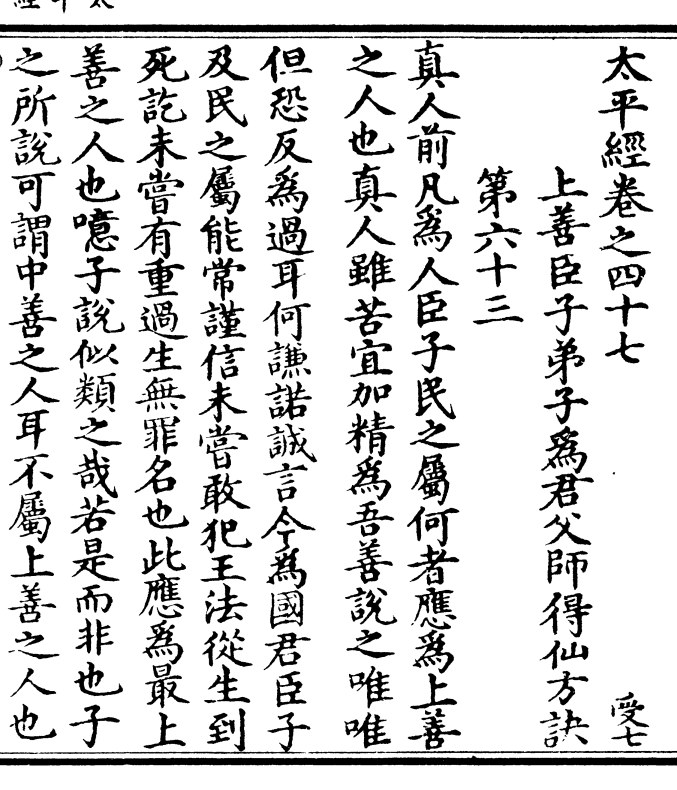 太平經卷之四十七 受七
上善臣子弟子爲君父師得仙方訣
第六十三
真人前凡爲人臣子民之屬何者應爲上善
之人也真人雖苦宜加精爲吾善說之唯唯
但恐反爲過耳何謙諾誠言今爲國君臣子
及民之屬能常謹信未嘗敢犯王法從生到
死訖未嘗有重過生無罪名也此應爲最上
善之人也噫子說似類之哉若是而非也子
之所說可謂中善之人耳不屬上善之人也